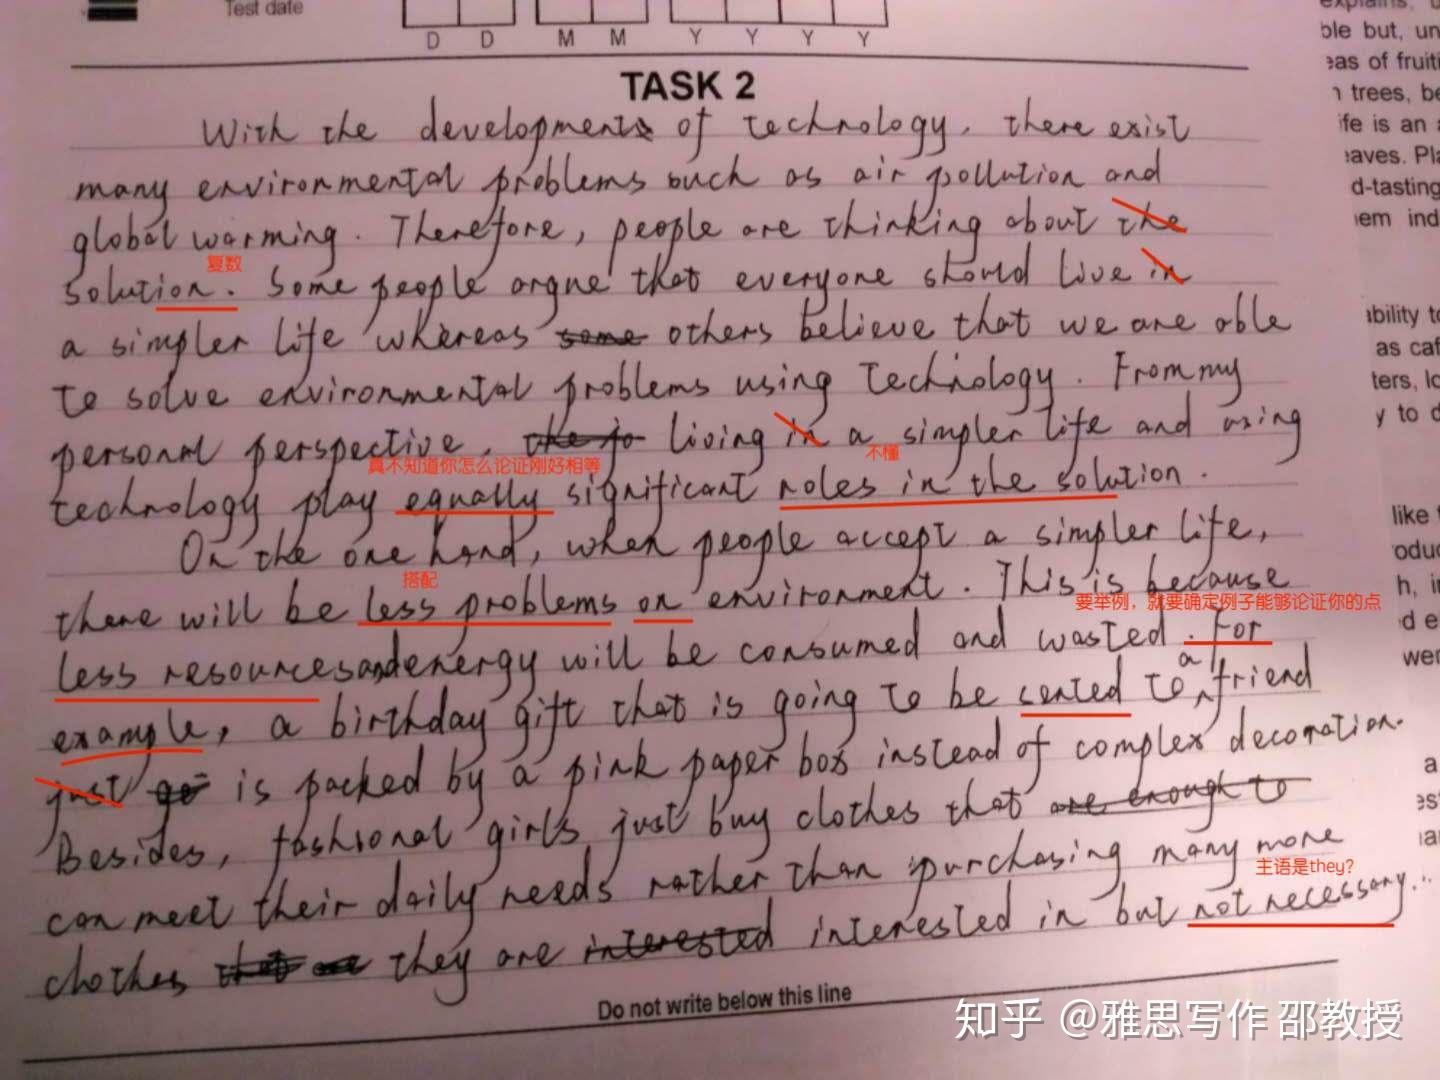 Test date
D D M M Y Y Y Y
TASK 2
With the development of technology, there exist
many environmental problems such as air pollution and
global warming. Therefore, people are thinking about the
复数
solution. Some people argue that everyone should live in
a simpler life whereas some others believe that we are able
to solve environmental problems using technology. From my
personal perspective, living in a simpler life and using
真不知道你怎么论证刚好相等 不懂
technology play equally significant roles in the solution.
On the one hand, when people accept a simpler life,
搭配
there will be less problems on environment. This is because
要举例，就要确定例子能够论证你的点
less resources and energy will be consumed and wasted. For
example, a birthday gift that is going to be sented to a friend
just go is packed by a pink paper box instead of complex decoration.
Besides, fashional girls just buy clothes that are enough to
can meet their daily needs rather than purchasing many more
主语是they?
clothes that are they are interested interested in but not necessary...
Do not write below this line
知乎 @雅思写作 邵教授
explains,
ble but, un
eas of fruiti
n trees, be
ife is an
eaves. Pla
d-tasting
em ind
ability to
as caf
ters, lo
y to d
like
oduc
h, in
d e
wer
a